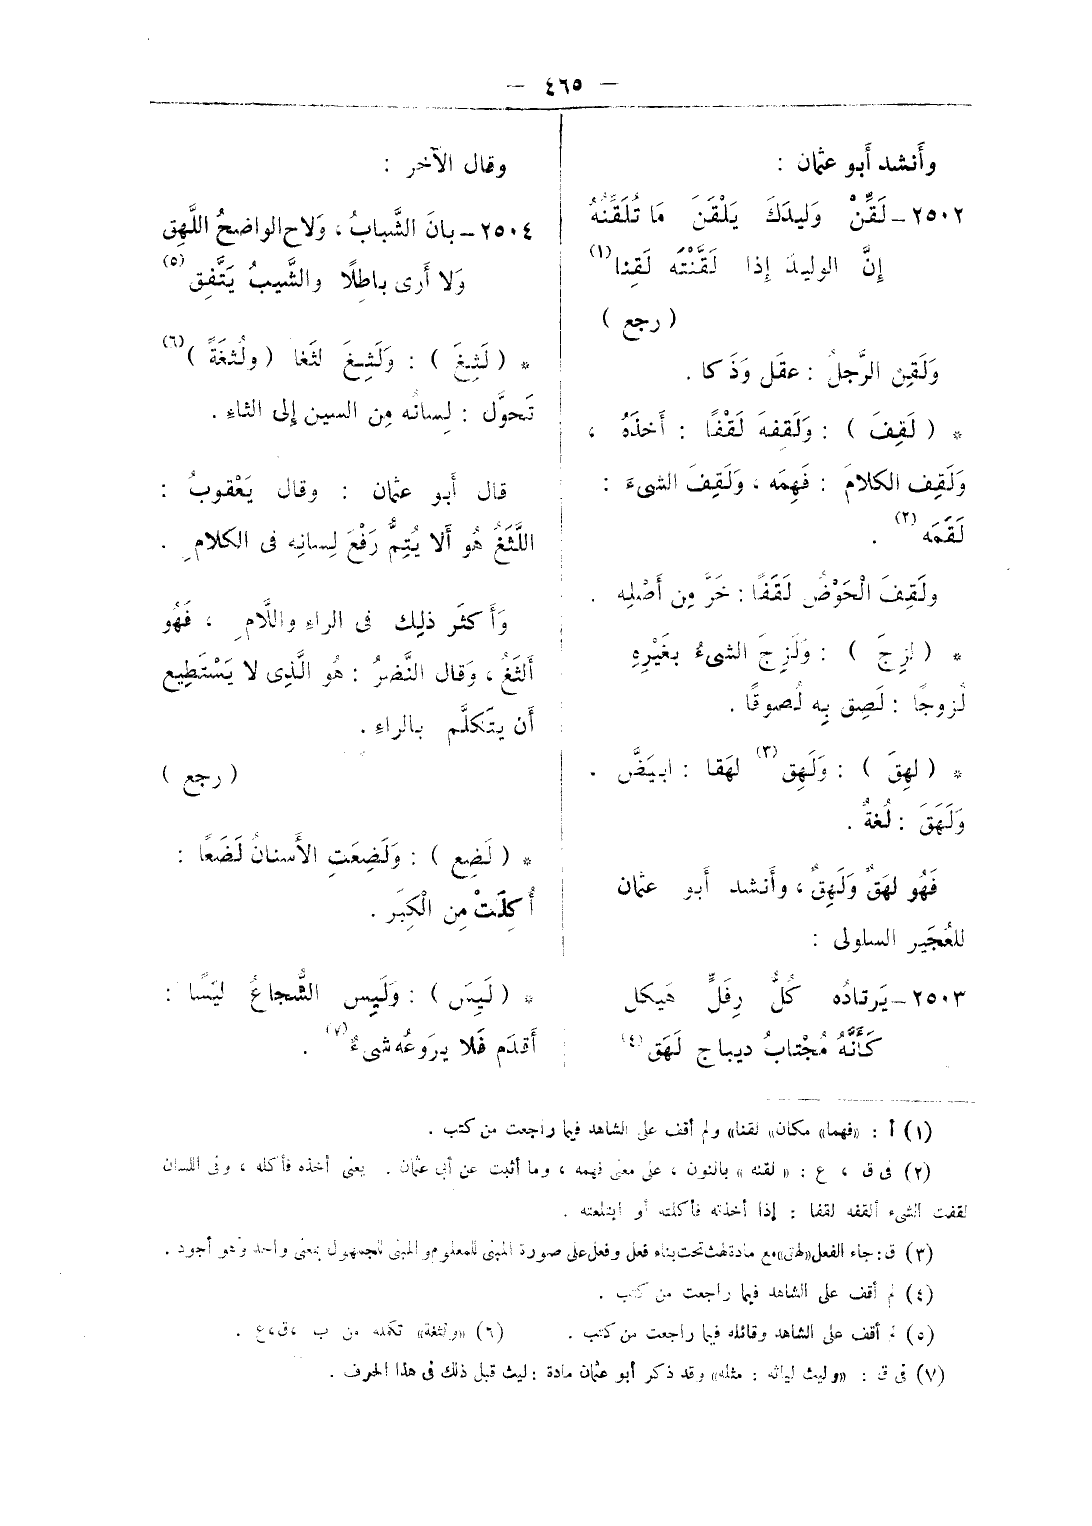 — ٤٦٥ —
وأَنشد أَبو عثمان :
٢٥٠٢ – لَقِّنْ وَليدَكَ يَلْقَنَ مَا تُلَقِّنُهُ
إِنَّ الوليدَ إِذا لَقَّنْتَه لَقِنا (١)
( رجع )
وَلَقِن الرَّجلُ : عقَل وَذَكا .
* ( لَقِفَ ) : وَلَقِفهَ لَقْفًا : أَخذَهُ ،
وَلَقِف الكلامَ : فَهِمَه ، وَلَقِفَ الشىءَ :
لَقَمَه (٢) .
ولَقِفَ الْحَوْضُ لَقَفًا : خَرَّ مِن أَصْلِه .
* ( لزِجَ ) : وَلَزِجَ الشىءُ بغَيْرِهِ
لُزوجًا : لَصِق بِه لُصوقًا .
* ( لهِقَ ) : وَلَهِق (٣) لهَقا : ابيَضَّ .
وَلَهَقَ : لُغةٌ .
فَهُو لهَقٌ وَلَهِقٌ ، وأَنشد أَبو عثمان
للعُجَير السلولى :
٢٥٠٣ – يَرتادُه كُلُّ رِفَلٍّ هَيكل
كَأَنَّهُ مُجْتابُ ديباج لَهَق (٤)
وقال الآخر :
٢٥٠٤ – بانَ الشَّبابُ ، وَلاح الواضحُ اللَّهِق
وَلا أَرى باطِلًا والشَّيبُ يَتَّفِق (٥)
* ( لَثِغَ ) : وَلَثِغَ لثَغا ( ولُثغَةً ) (٦)
تَحوَّل : لِسانُه مِن السين إِلى الثاءِ .
قال أَبو عثمان : وقال يَعْقوبُ :
اللَّثَغُ هُو أَلا يُتِمُّ رَفْعَ لِسانِه فى الكلامِ .
وَأَكثَر ذلِك فى الراءِ واللَّامِ ، فَهُو
أَلثَغُ ، وَقال النَّضرُ : هُو الَّذِى لا يَسْتَطِيع
أَن يتَكلَّم بالراءِ .
( رجع )
* ( لَضِع ) : وَلَضِعَتِ الأَسنانُ لَضَعًا :
أُكِلَتْ مِن الْكِبَر .
* ( لَيِسَ ) : وَلَيِس الشُّجاعُ ليَسًا :
أَقدَم فَلا يروَعُه شىءٌ (٧) .
(١) أ : «فهما» مكان» لقنا» ولم أقف على الشاهد فيما راجعت من كتب .
(٢) فى ق ، ع : « لقنه » بالنون ، على معنى فهمه ، وما أثبت عن أبى عثمان . يعنى أخذه فأكله ، وفى اللسان
لقفت الشىء ألقفه لقفا : إذا أخذته فأكلته أو ابتلعته .
(٣) ق : جاء الفعل «لهق» مع مادة لهث تحت بناء فعل وفعل على صورة المبنى للمعلوم والمبنى للمجهول بمعنى واحد وهو أجود .
(٤) لم أقف على الشاهد فيما راجعت من كتب .
(٥) لم أقف على الشاهد وقائله فيما راجعت من كتب . (٦) «ولثغة» تكمله من ب ، ق ، ع .
(٧) فى ق : «وليث لياثه : مثله» وقد ذكر أبو عثمان مادة : ليث قبل ذلك فى هذا الحرف .